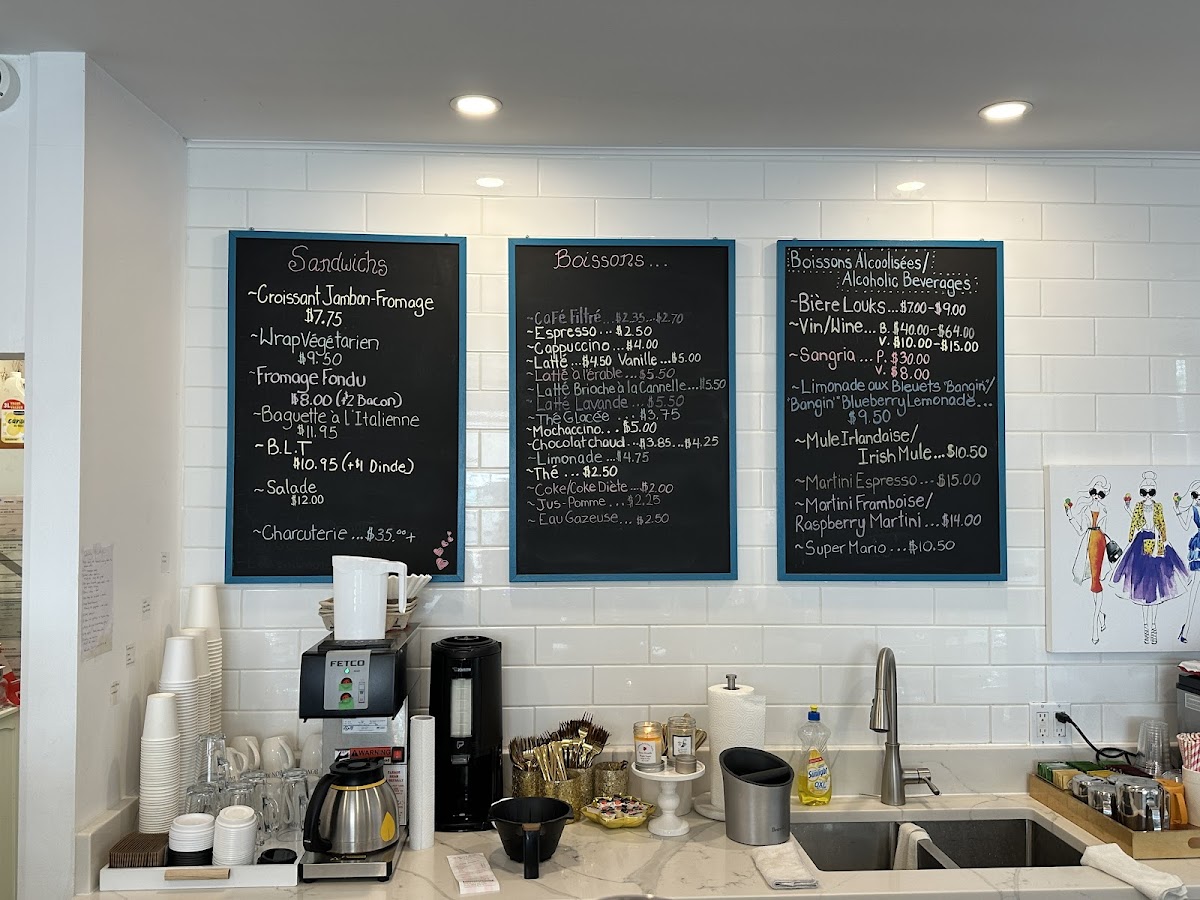 Sandwichs
~Croissant Jambon-Fromage
$7.75
~Wrap Végétarien
$9.50
~Fromage Fondu
$8.00 (+$2 Bacon)
~Baguette à l'Italienne
$11.95
~B.L.T
$10.95 (+$1 Dinde)
~Salade
$12.00
~Charcuterie ...$35.00+
Boissons...
~Café Filtré...$2.35...$2.70
~Espresso...$2.50
~Cappuccino...$4.00
~Latté...$4.50 Vanille...$5.00
~Latté à l'érable...$5.50
~Latté Brioche à la Cannelle...$5.50
~Latté Lavande...$5.50
~Thé Glacée ....$3.75
~Mochaccino...$5.00
~Chocolat chaud...$3.85...$4.25
~Limonade...$4.75
~Thé ...$2.50
~Coke/Coke Diète...$2.00
~Jus-Pomme...$2.25
~Eau Gazeuse...$2.50
Boissons Alcoolisées/
Alcoholic Beverages
~Bière Louks...$7.00-$9.00
~Vin/Wine... B. $40.00-$64.00
V. $10.00-$15.00
~Sangria ... P. $30.00
V. $8.00
~Limonade aux Bleuets "Bangin"/
"Bangin" Blueberry Lemonade...
$9.50
~Mule Irlandaise/
Irish Mule...$10.50
~Martini Espresso...$15.00
~Martini Framboise/
Raspberry Martini...$14.00
~Super Mario...$10.50
FETCO
WARNING
Sunlight